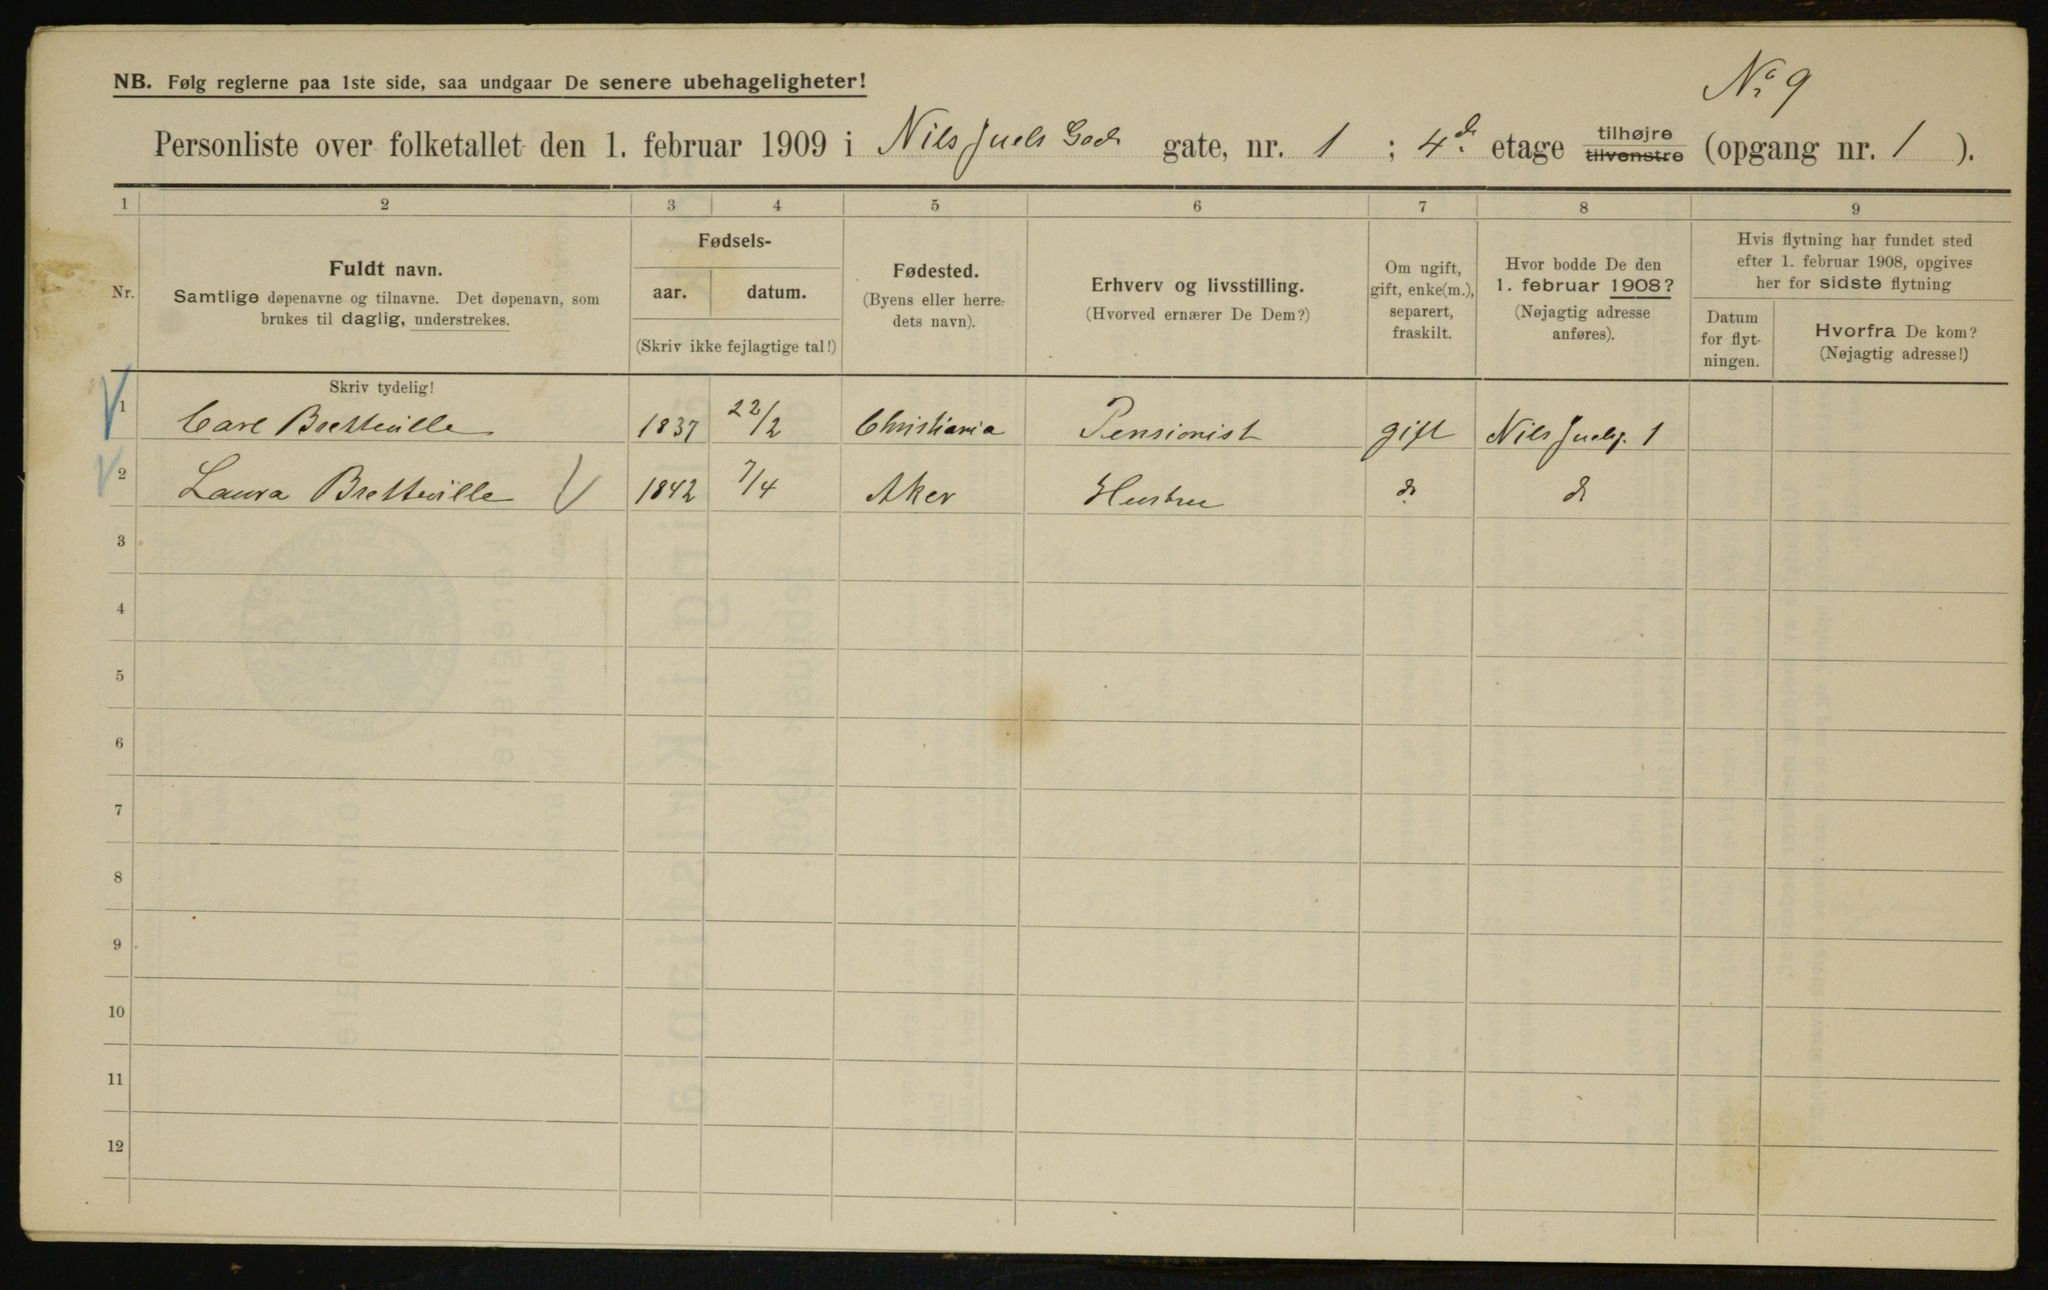 No 9
NB. Følg reglerne paa 1ste side, saa undgaar De senere ubehageligheter!
Personliste over folketallet den 1. februar 1909 i Nils Juels Gade gate, nr. 1 ; 4de etage tilhøjre tilvenstre (opgang nr. 1 ).
1 2 3 4 5 6 7 8 9
Nr.
Fuldt navn.
Samtlige døpenavne og tilnavne. Det døpenavn, som
brukes til daglig, understrekes.
Fødsels-
aar. datum.
(Skriv ikke fejlagtige tal!)
Fødested.
(Byens eller herre-
dets navn).
Erhverv og livsstilling.
(Hvorved ernærer De Dem?)
Om ugift,
gift, enke(m.),
separert,
fraskilt.
Hvor bodde De den
1. februar 1908?
(Nøjagtig adresse
anføres).
Hvis flytning har fundet sted
efter 1. februar 1908, opgives
her for sidste flytning
Datum
for flyt-
ningen.
Hvorfra De kom?
(Nøjagtig adresse!)
Skriv tydelig!
1 Carl Bretteville 1837 22/2 Christiania Pensionist gift Nils Juelsg. 1
2 Laura Bretteville 1842 7/4 Aker Hustru do do
3
4
5
6
7
8
9
10
11
12